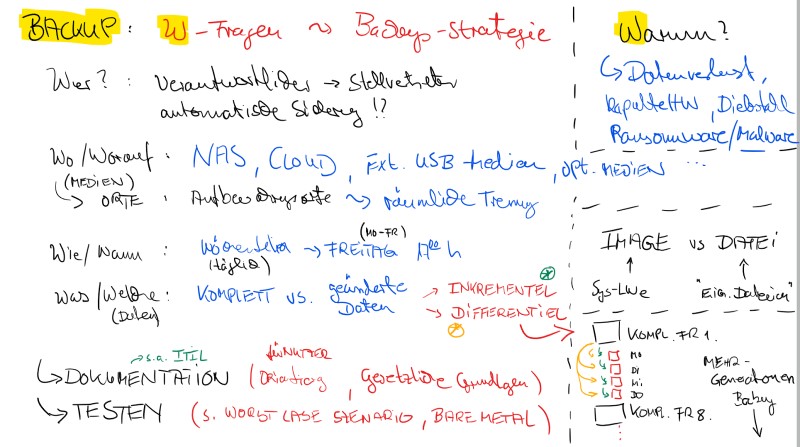 BACKUP : W-Fragen ~ Backup-Strategie
Wer? : Verantwortlicher → Stellvertreter
automatische Sicherung !?
Wo/Worauf : NAS, CLOUD, Ext. USB Medien, opt. MEDIEN ...
(MEDIEN)
↳ ORTE : Aufbewahrungsorte ~ räumliche Trennung
(MO-FR)
Wie/Wann : wöchentlich → FREITAG 17⁰⁰ h
(täglich)
Was/Welche : KOMPLETT vs. geänderte Daten → INKREMENTEL
(Daten) → DIFFERENTIEL
→ s.a. ITIL
↳ DOKUMENTATION ( Orientierung, Gesetzliche Grundlagen)
↳ TESTEN (s. WORST CASE SZENARIO, BARE METAL)
Warum?
↳ Datenverlust,
kaputte HW, Diebstahl
Ransomware/Malware
IMAGE vs DATEI
Sys-LWe "Eig. Dateien"
KOMPL. FR 1.
MO
DI
MI
DO
KOMPL. FR 8.
MEHR-
Generationen
Backup